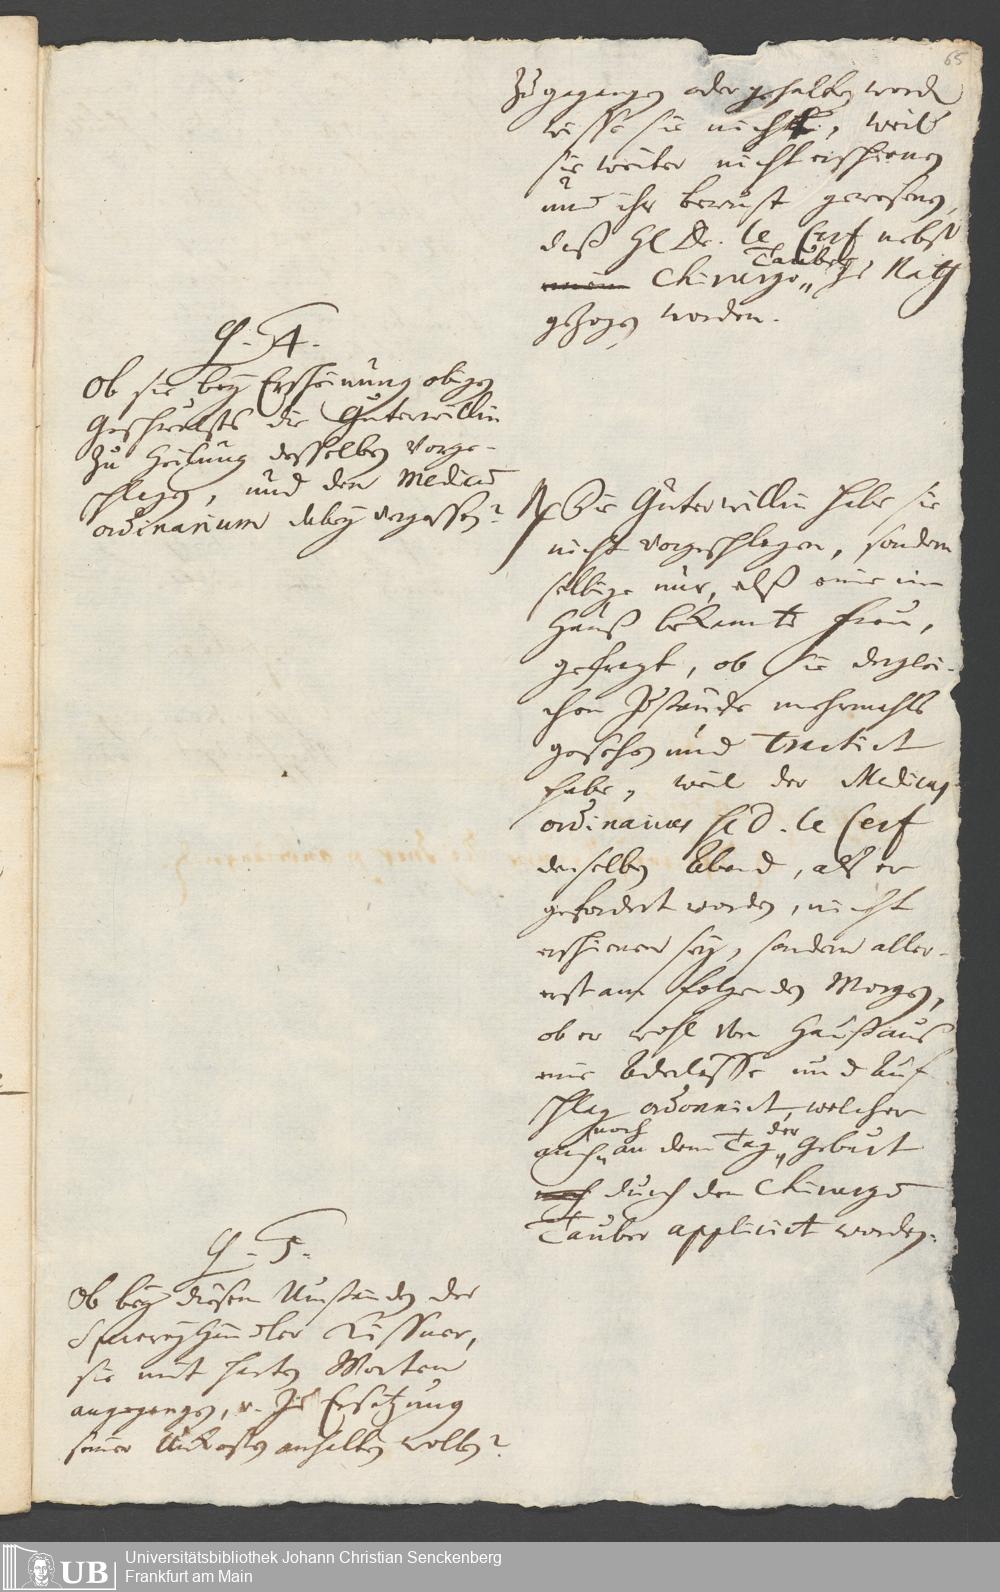 65
zugegangen oder gehalten worden
wisse sie nicht, weil
sie weiter nicht erschienen
und ihr bewust gewesen,
daß H. Dr. le Cerf nebst
Chirurgo Tauber zu Rath
gezogen worden.
Q. 4.
Ob sie bey Erscheinung obigen
Geschwulsts die Guterwillin
zu Heilung desselben vorge-
schlagen, und den Medicum
ordinarium dabey vergessen?
Rx Die Guterwillin habe sie
nicht vorgeschlagen, sondern
selbige nur, alß eine im
Hauß bekante Frau,
gefragt, ob sie derglei-
chen Zustände mehrmahls
gesehen und tractirt
habe, weil der Medicus
ordinarius H. D. le Cerf
denselben Abend, als er
gefordert worden, nicht
erschienen sey, sondern aller-
erst am folgenden Morgen,
ob er wohl von Hauß aus
eine Aderlässe und Auf
schlag ordonnirt, welcher
auch noch an dem Tag der Geburt
durch den Chirurgum
Tauber applicirt worden.
Q. 5.
Ob bey diesen Umständen der
Specereyhändler Küssner,
sie mit harten Worten
angegangen, u. zu Ersetzung
seiner Unkosten anhalten wollen?
Universitätsbibliothek Johann Christian Senckenberg
Frankfurt am Main
UB